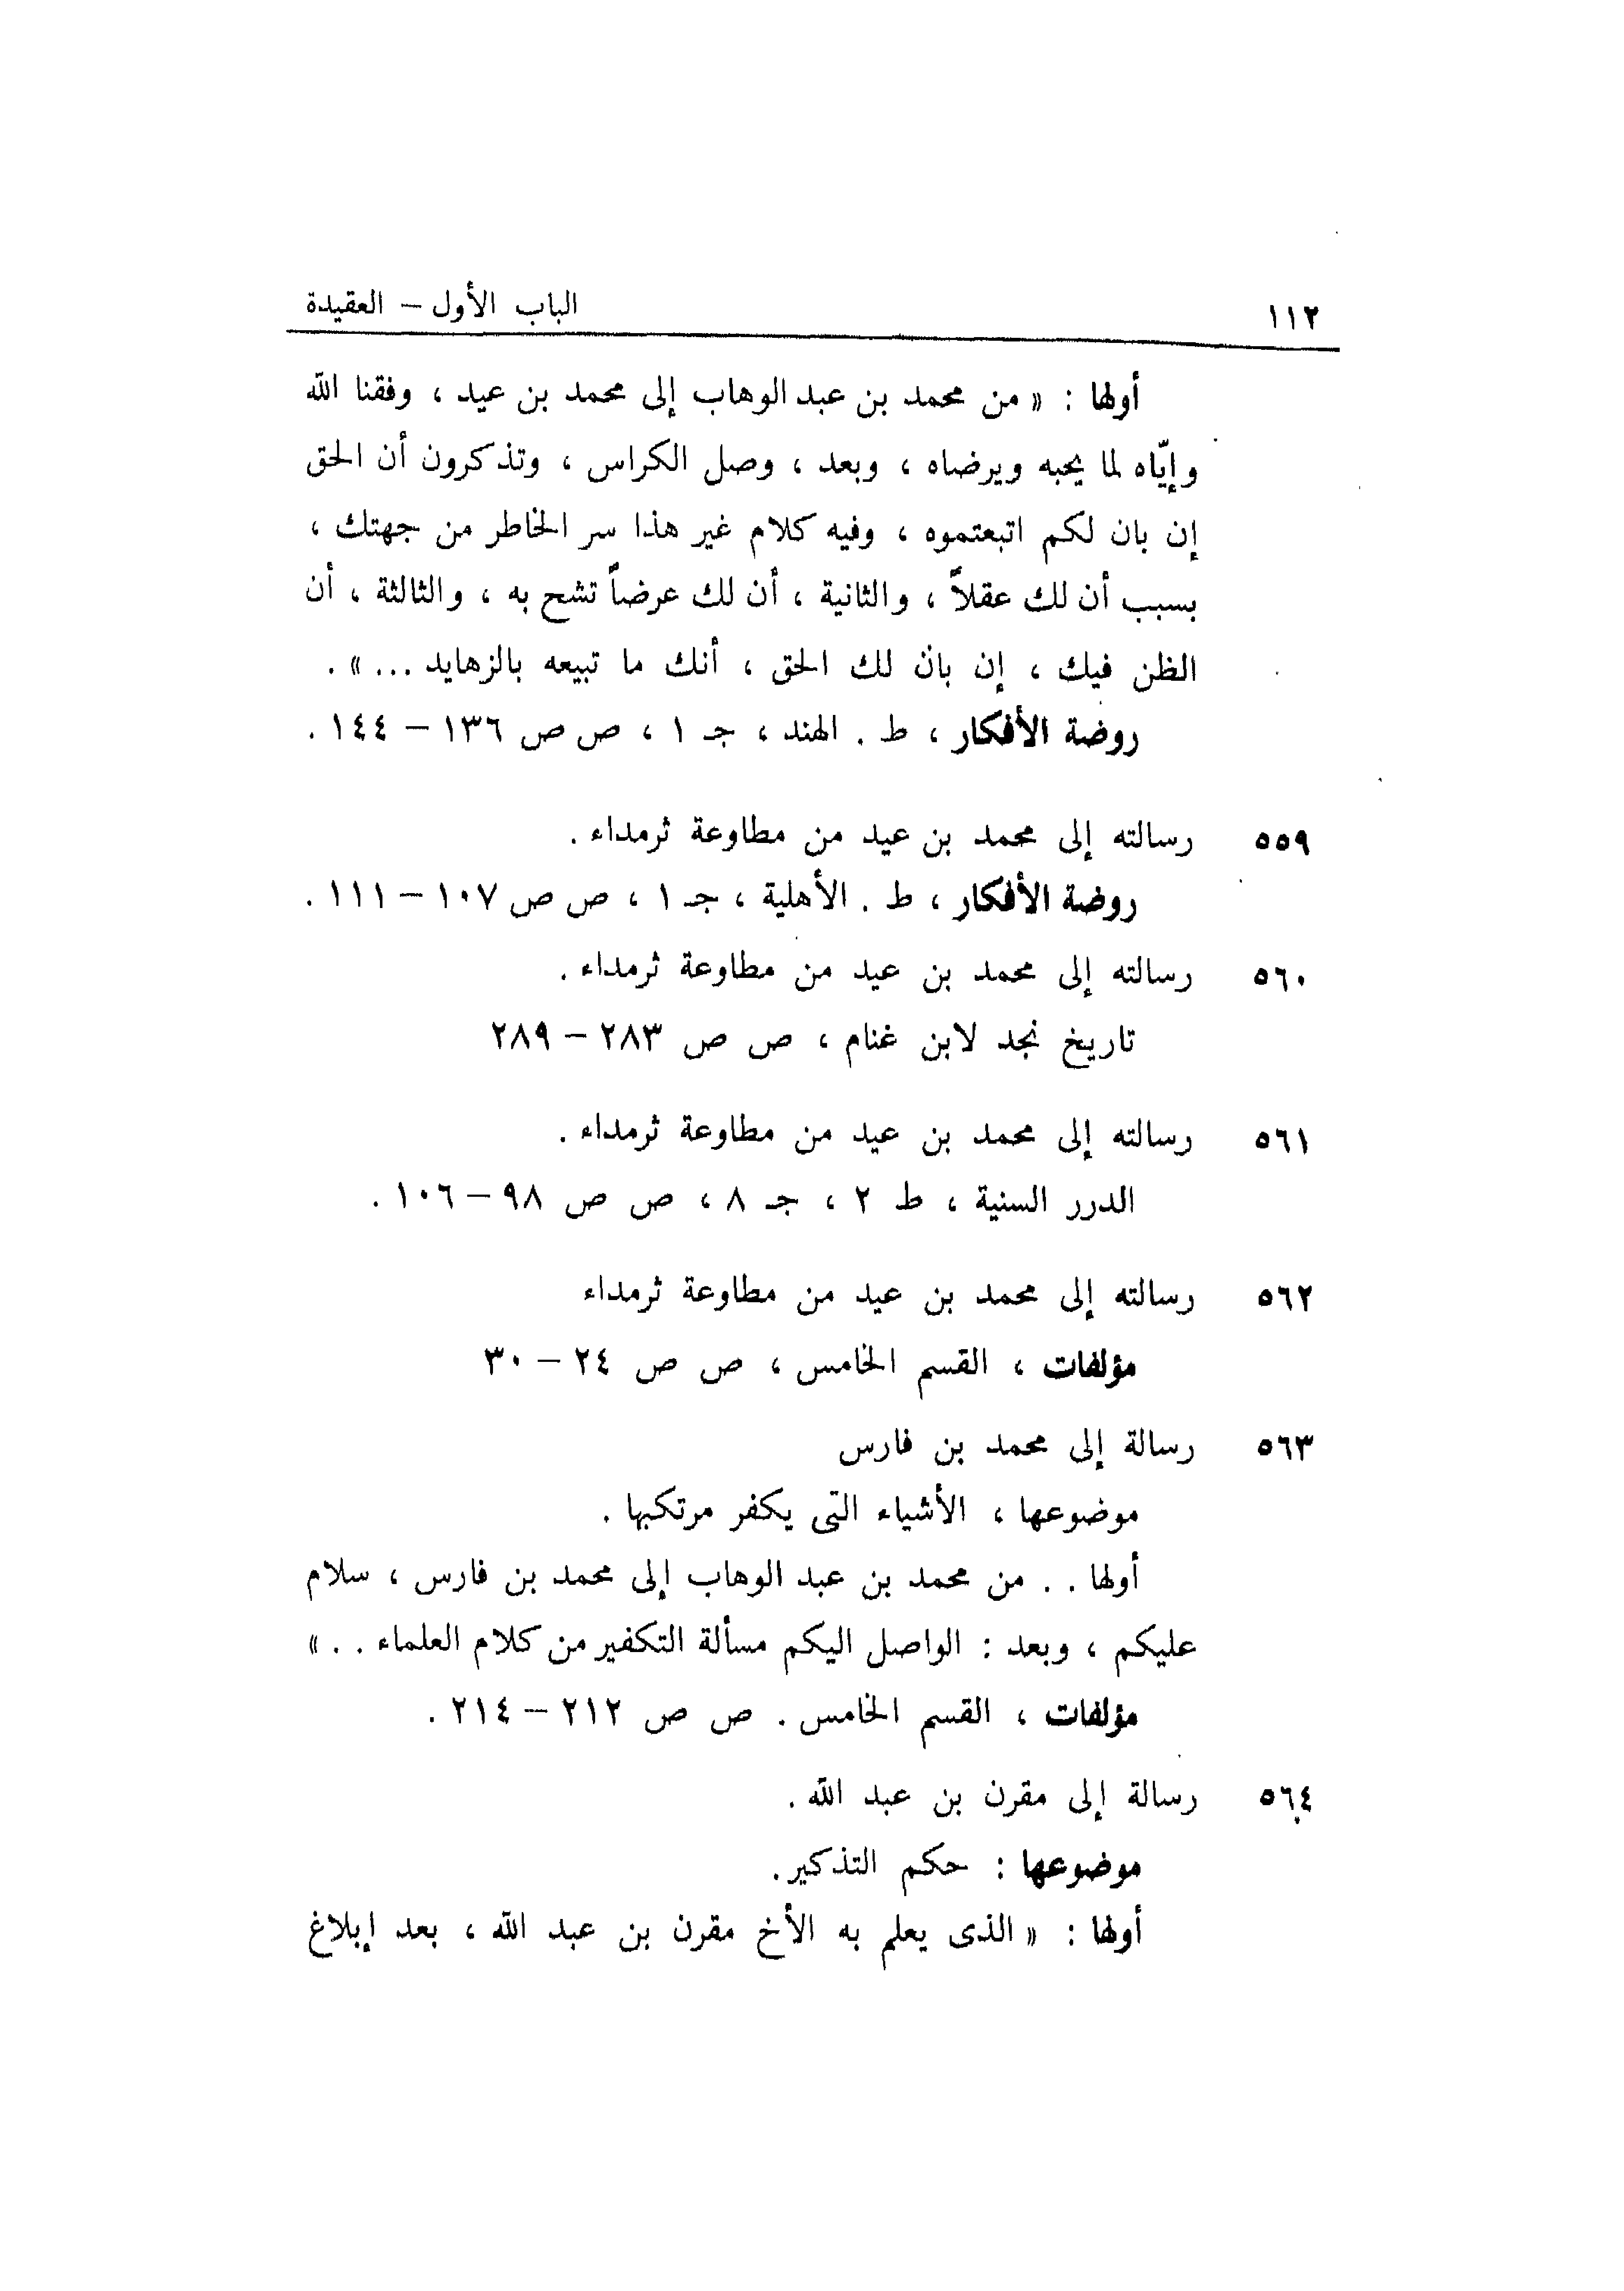 ١١٢ الباب الأول – العقيدة
أولها : « من محمد بن عبد الوهاب إلى محمد بن عيد ، وفقنا الله
وإيّاه لما يحبه ويرضاه ، وبعد ، وصل الكراس ، وتذكرون أن الحق
إن بان لكم اتبعتموه ، وفيه كلام غير هذا سر الخاطر من جهتك ،
بسبب أن لك عقلاً ، والثانية ، أن لك عرضاً تشح به ، والثالثة ، أن
الظن فيك ، إن بان لك الحق ، أنك ما تبيعه بالزهايد ... » .
روضة الأفكار ، ط . الهند ، جـ ١ ، ص ص ١٣٦ – ١٤٤ .
٥٥٩ رسالته إلى محمد بن عيد من مطاوعة ثرمداء .
روضة الأفكار ، ط . الأهلية ، جـ ١ ، ص ص ١٠٧ – ١١١ .
٥٦٠ رسالته إلى محمد بن عيد من مطاوعة ثرمداء .
تاريخ نجد لابن غنام ، ص ص ٢٨٣ – ٢٨٩
٥٦١ رسالته إلى محمد بن عيد من مطاوعة ثرمداء .
الدرر السنية ، ط ٢ ، جـ ٨ ، ص ص ٩٨ – ١٠٦ .
٥٦٢ رسالته إلى محمد بن عيد من مطاوعة ثرمداء
مؤلفات ، القسم الخامس ، ص ص ٢٤ – ٣٠
٥٦٣ رسالة إلى محمد بن فارس
موضوعها ، الأشياء التى يكفر مرتكبها .
أولها . . من محمد بن عبد الوهاب إلى محمد بن فارس ، سلام
عليكم ، وبعد : الواصل اليكم مسألة التكفير من كلام العلماء . . »
مؤلفات ، القسم الخامس . ص ص ٢١٢ – ٢١٤ .
٥٦٤ رسالة إلى مقرن بن عبد الله .
موضوعها : حكم التذكير .
أولها : « الذى يعلم به الأخ مقرن بن عبد الله ، بعد إبلاغ